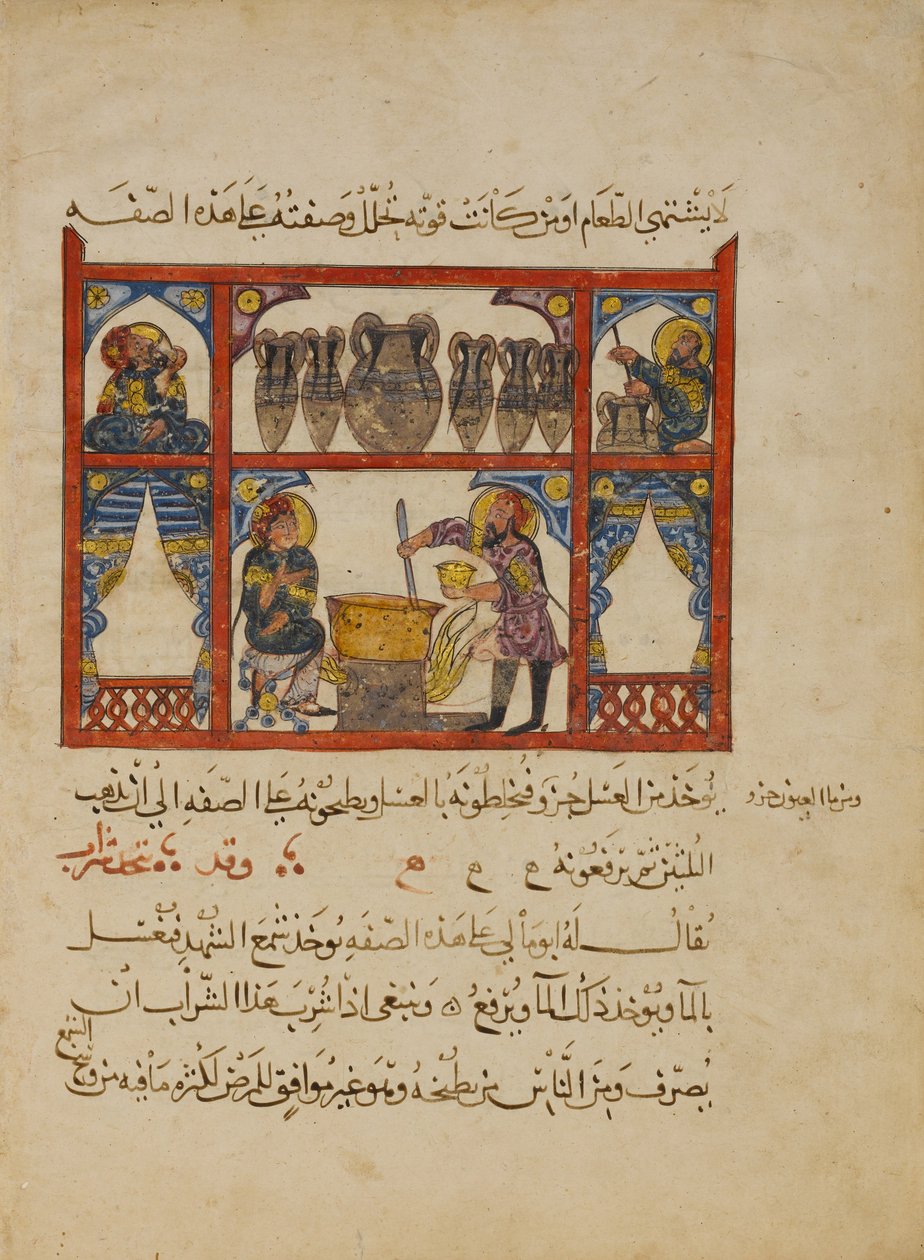 لَا يَشْتَهي الطّعَام اوَمَنْ كَانَتْ قوّته تُحلّلُ وَصفتهُ عَلَى هَذه الصّفَه
يُؤخَذ من العَسَل جُزو فيُخلِطُونَهُ بالعسَل ويطبخونهُ عَلى الصّفَهِ الي انْ تذهب
ومن ما العيون جزو
الثلثين ثمّ يرَفعُونهُ ح ح ح وقد يتخذ شراب
يُقالُ لَهُ ابومالي عَلى هَذه الصّفَهِ يُوخَذ شمَع الشهْدِ فيغْسَل
بالمآ ويُوخذ ذلك المآ ويُرفعُ ه وَينبغى اذا شُرِبَ هَذا الشّرَاب انْ
يُصرّف وَمِنَ النَّاسِ من يطبخهُ وهوَ غير مُوَافِق للمَرَضَى لكثرة مَا فيه من وسخ
الشمع